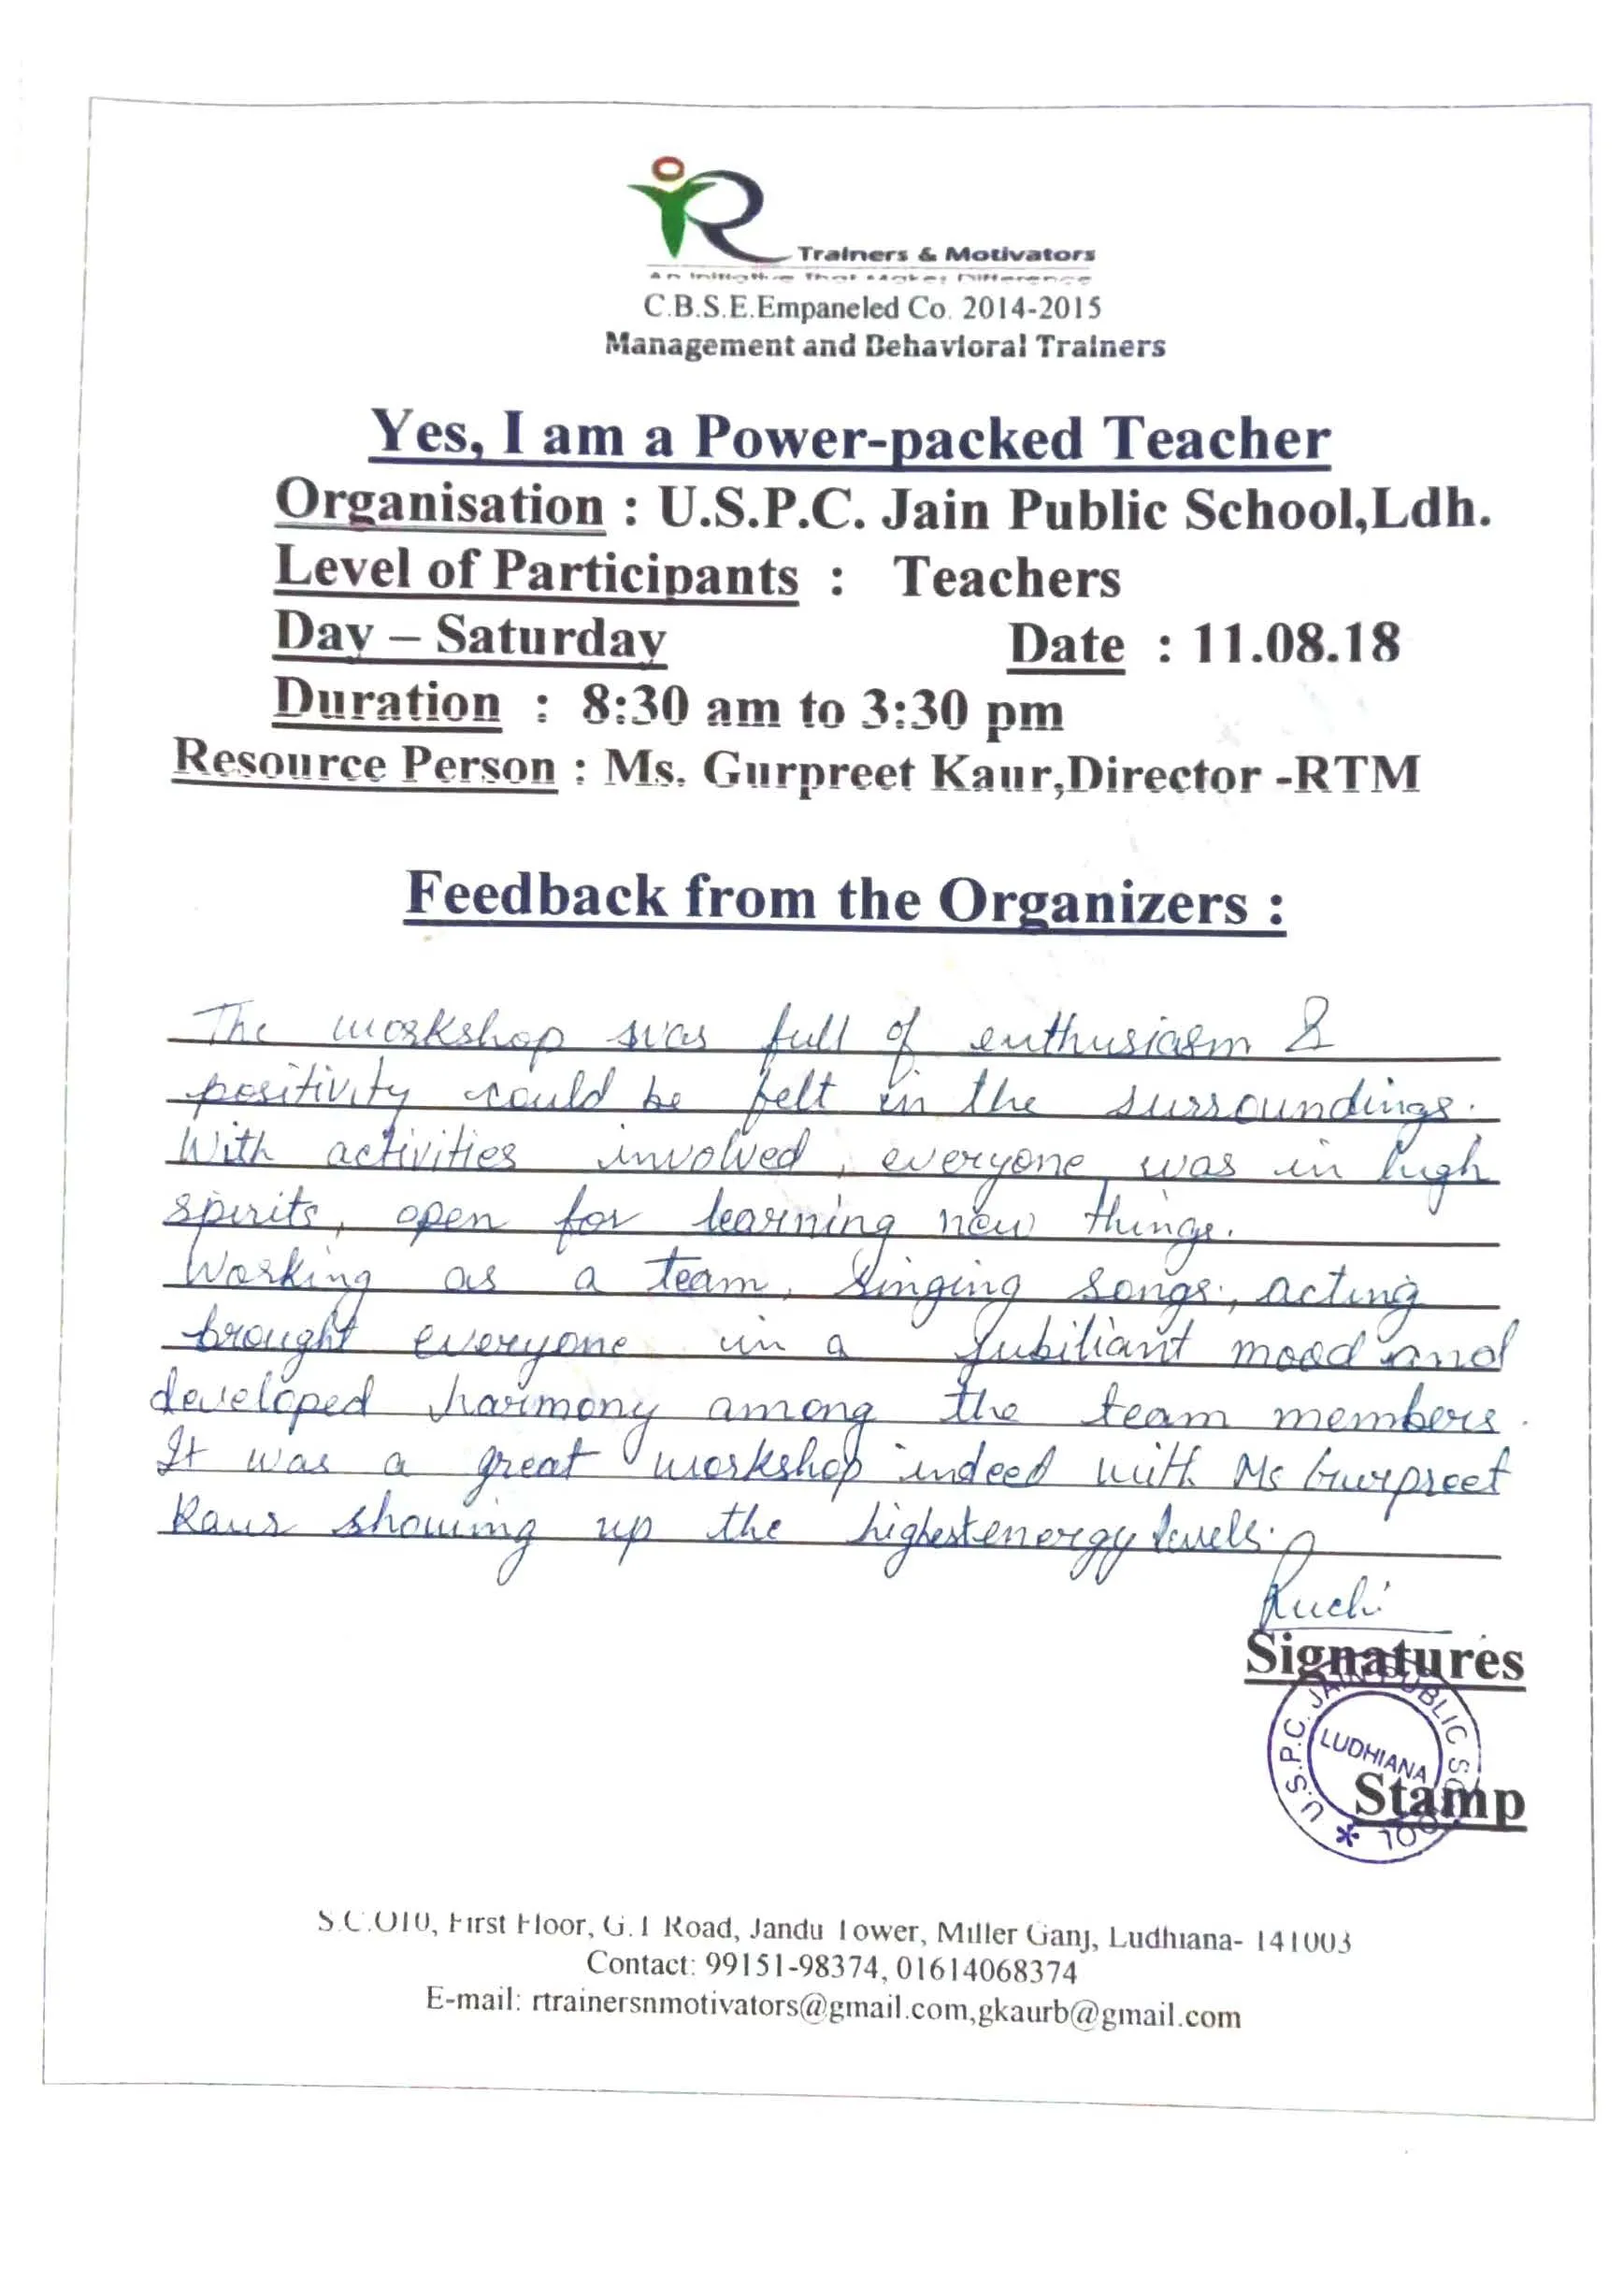 R Trainers & Motivators
An Initiative That Makes Difference
C.B.S.E.Empaneled Co. 2014-2015
Management and Behavioral Trainers
Yes, I am a Power-packed Teacher
Organisation : U.S.P.C. Jain Public School,Ldh.
Level of Participants : Teachers
Day – Saturday Date : 11.08.18
Duration : 8:30 am to 3:30 pm
Resource Person : Ms. Gurpreet Kaur,Director -RTM
Feedback from the Organizers :
The workshop was full of enthusiasm &
positivity could be felt in the surroundings.
With activities involved, everyone was in high
spirits, open for learning new things.
Working as a team, singing songs, acting
brought everyone in a jubiliant mood and
developed harmony among the team members.
It was a great workshop indeed with Ms Gurpreet
Kaur showing up the highest energy levels.
Ruchi
Signatures
U.S.P.C. JAIN PUBLIC SCHOOL
LUDHIANA
Stamp
S.C.O10, First Floor, G.T Road, Jandu Tower, Miller Ganj, Ludhiana- 141003
Contact: 99151-98374, 01614068374
E-mail: rtrainersnmotivators@gmail.com,gkaurb@gmail.com